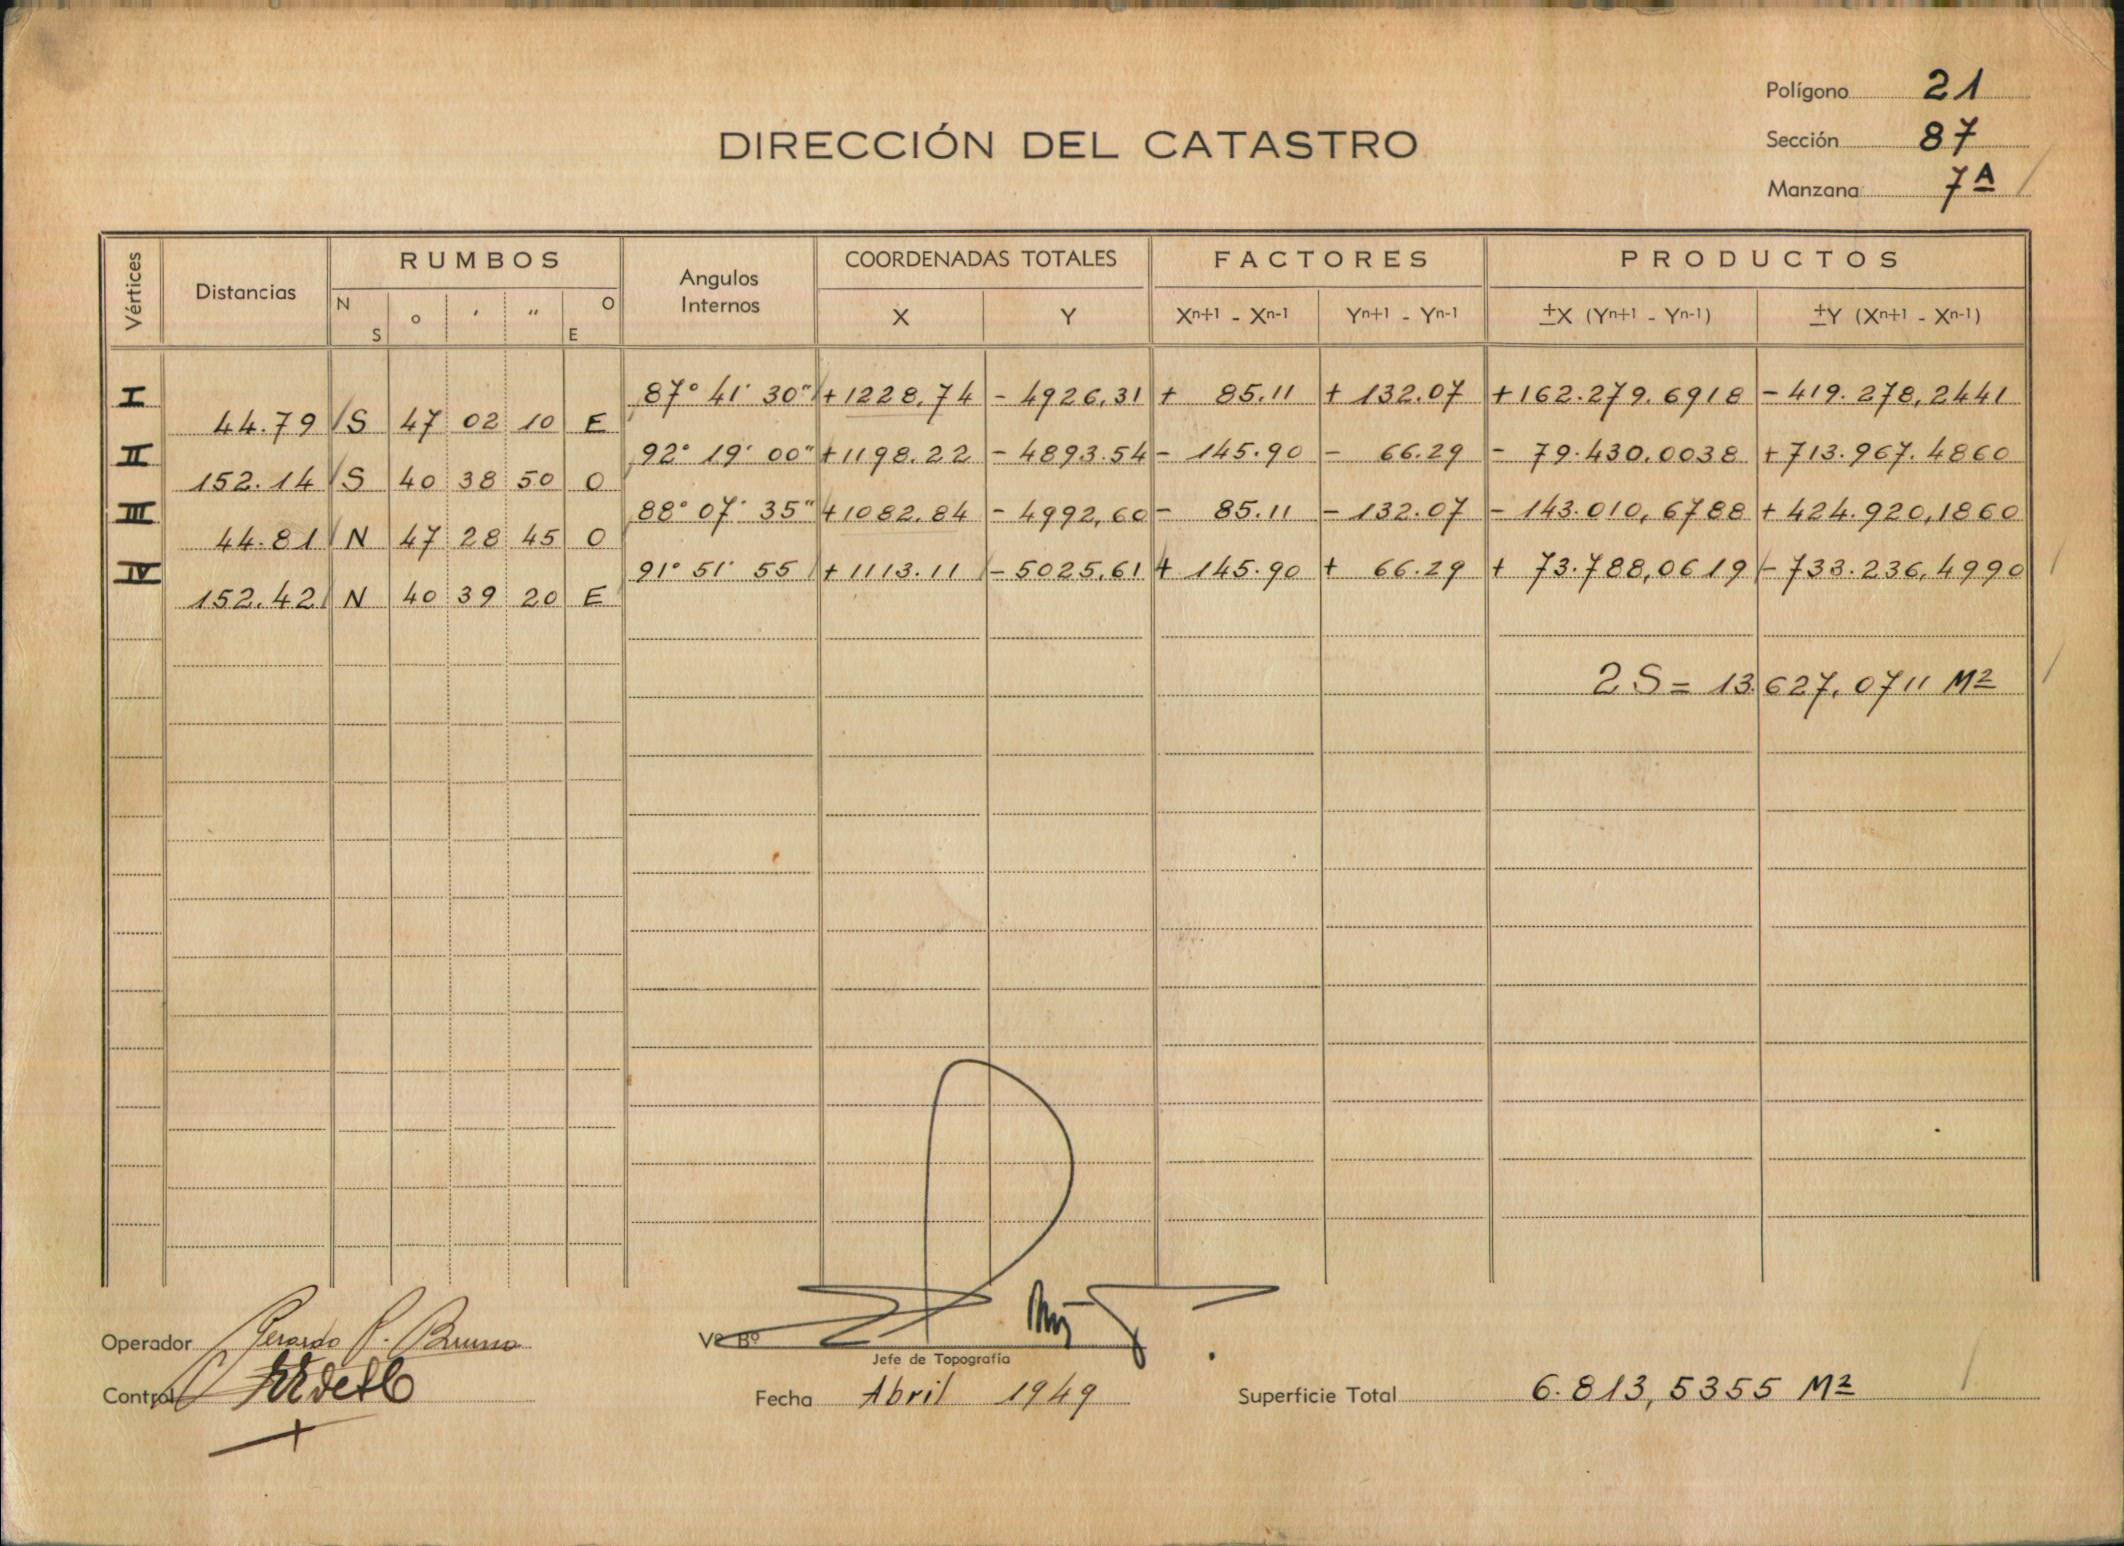 Polígono 21
DIRECCIÓN DEL CATASTRO
Sección 87
Manzana 7A
Vértices Distancias RUMBOS Angulos Internos COORDENADAS TOTALES FACTORES PRODUCTOS
N S ° ' " O E X Y Xn+1 - Xn-1 Yn+1 - Yn-1 ±X (Yn+1 - Yn-1) ±Y (Xn+1 - Xn-1)
I 87° 41' 30" +1228,74 - 4926,31 + 85.11 + 132.07 +162.279.6918 - 419.278,2441
44.79 S 47 02 10 E
II 92° 19' 00" +1198.22 - 4893.54 - 145.90 - 66.29 - 79.430.0038 +713.967.4860
152.14 S 40 38 50 O
III 88° 07' 35" +1082.84 - 4992,60 - 85.11 - 132.07 - 143.010,6788 + 424.920,1860
44.81 N 47 28 45 O
IV 91° 51' 55 + 1113.11 - 5025,61 + 145.90 + 66.29 + 73.788,0619 - 733.236,4990
152.42 N 40 39 20 E
2S = 13.627,0711 M2
Operador Gerardo P. Bruno
Vº Bº
Jefe de Topografía
Control
Fecha Abril 1949
Superficie Total 6.813,5355 M2